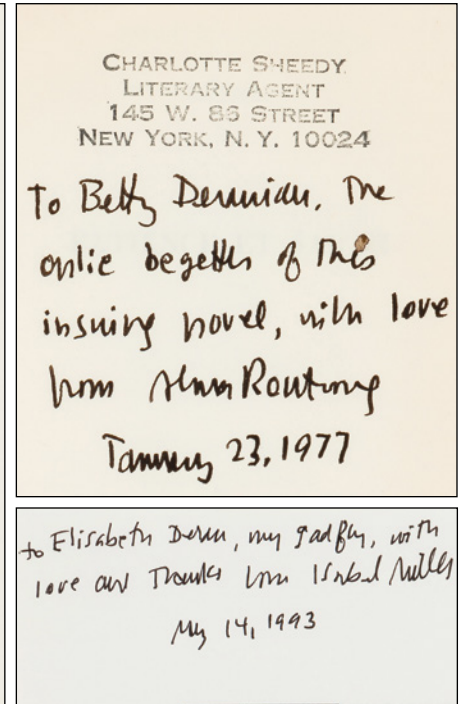 CHARLOTTE SHEEDY
LITERARY AGENT
145 W. 86 STREET
NEW YORK, N. Y. 10024
To Betty The
onlie begetter of this
insuing novel, with love
from Alma Routsong
January 23, 1977
to Elisabeth Deran, my gadfly, with
love and Thanks from Isabel Miller
May 14, 1993